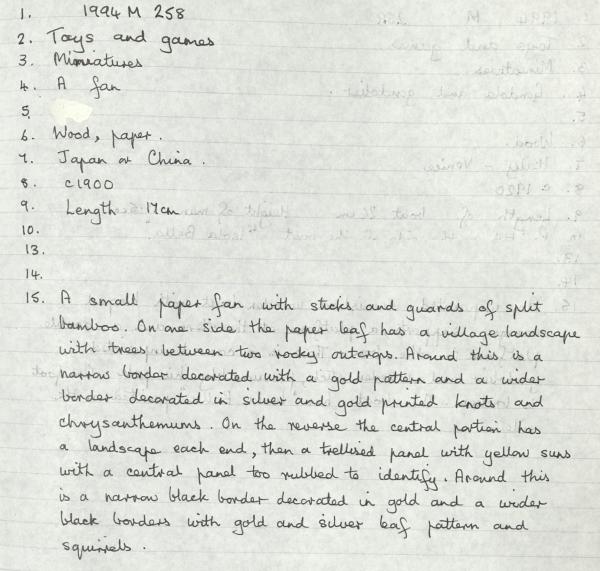 1. 1994 M 258
2. Toys and games
3. Miniatures
4. A fan
5.
6. Wood, paper.
7. Japan or China.
8. c1900
9. Length 17cm
10.
13.
14.
15. A small paper fan with sticks and guards of split
bamboo. On one side the paper leaf has a village landscape
with trees between two rocky outcrops. Around this is a
narrow border decorated with a gold pattern and a wider
border decorated in silver and gold printed knots and
chrysanthemums. On the reverse the central portion has
a landscape each end, then a trellised panel with yellow suns
with a central panel too rubbed to identify. Around this
is a narrow black border decorated in gold and a wider
black borders with gold and silver leaf pattern and
squirrels.